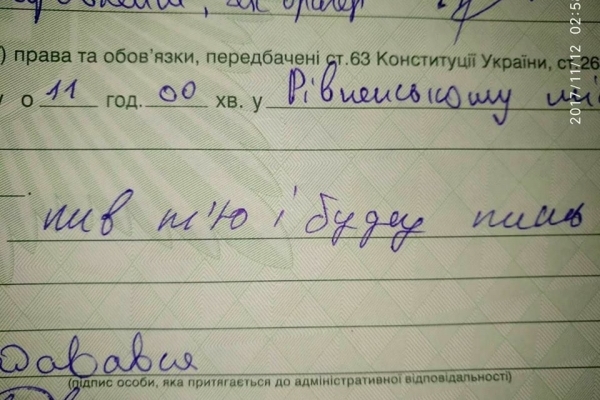 ) права та обов'язки, передбачені ст.63 Конституції України, ст.26
о 11 год. 00 хв. у Рівненському
пив п'ю і буду пить
(підпис особи, яка притягається до адміністративної відповідальності)
2017/11/12 02:5